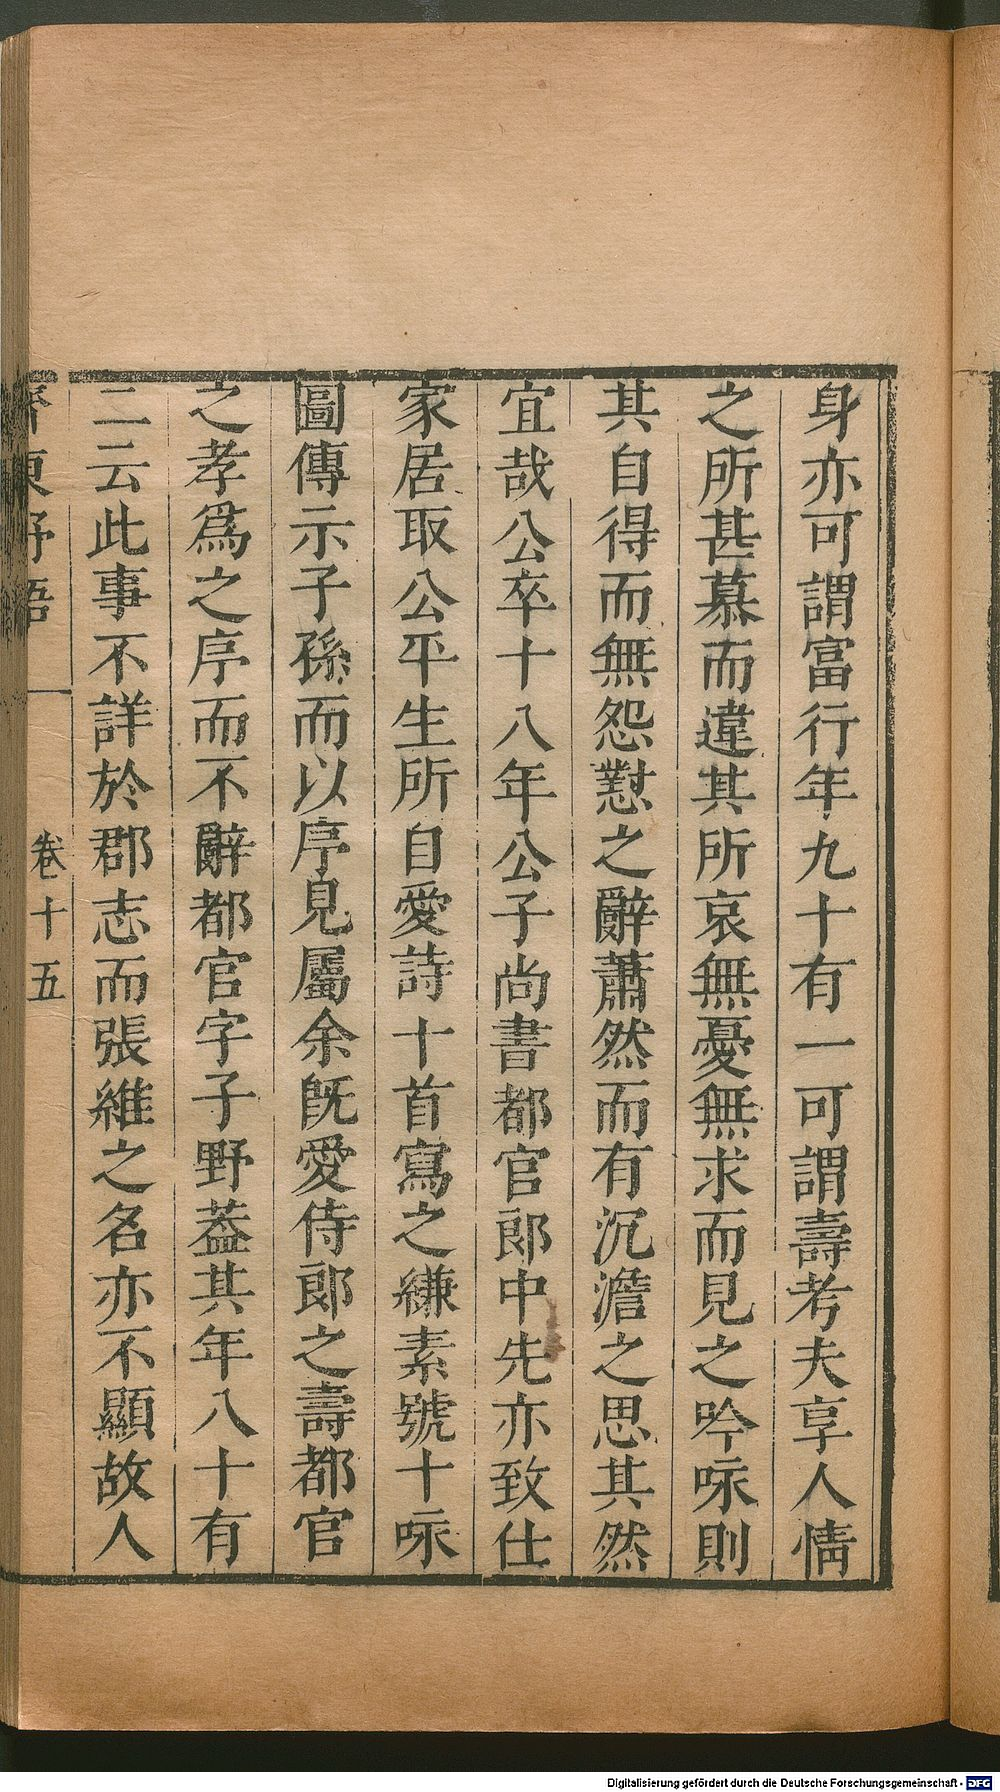 身亦可謂富行年九十有一可謂壽考夫享人情
之所甚慕而違其所哀無憂無求而見之吟咏則
其自得而無怨懟之辭蕭然而有沉澹之思其然
宜哉公卒十八年公子尚書都官郎中先亦致仕
家居取公平生所自愛詩十首寫之縑素號十咏
圖傳示子孫而以序見屬余既愛侍郎之壽都官
之孝爲之序而不辭都官字子野葢其年八十有
二云此事不詳於郡志而張維之名亦不顯故人
齊東野語
卷十五
Digitalisierung gefördert durch die Deutsche Forschungsgemeinschaft - DFG